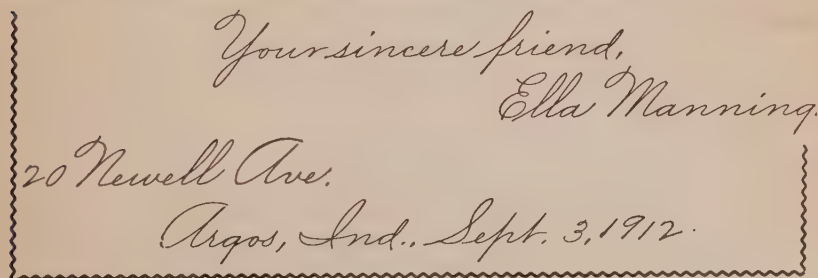 Your sincere friend,
Ella Manning.
20 Newell Ave.
Argos, Ind., Sept. 3, 1912.